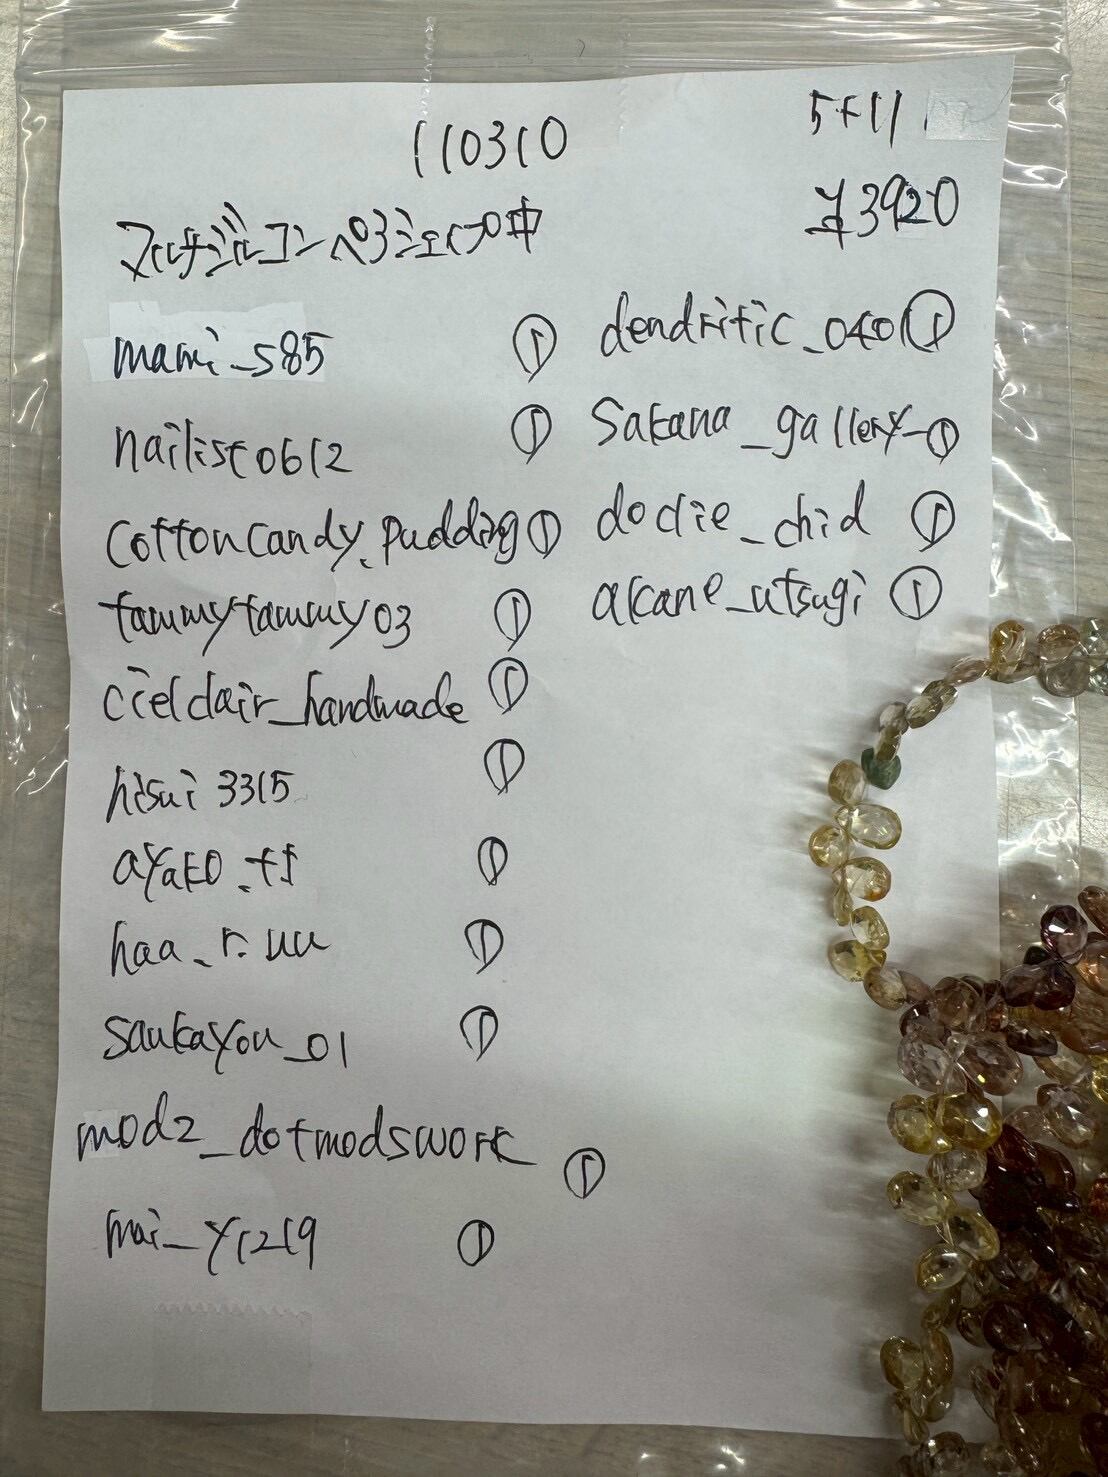 110310
5+11
¥3920
マルチジルコンペアシェイプ中
mami_s85 ①
nailist0612 ①
cottoncandy.pudding ①
tammytammy03 ①
cielclair_handmade ①
hisui3315 ①
ayako.t1 ①
haa_r.uu ①
saukayou_01 ①
mod2_dotmodswork ①
mai_y1219 ①
dendritic_0401 ①
sakana_gallery_ ①
dodie_chid ①
akane_utsugi ①